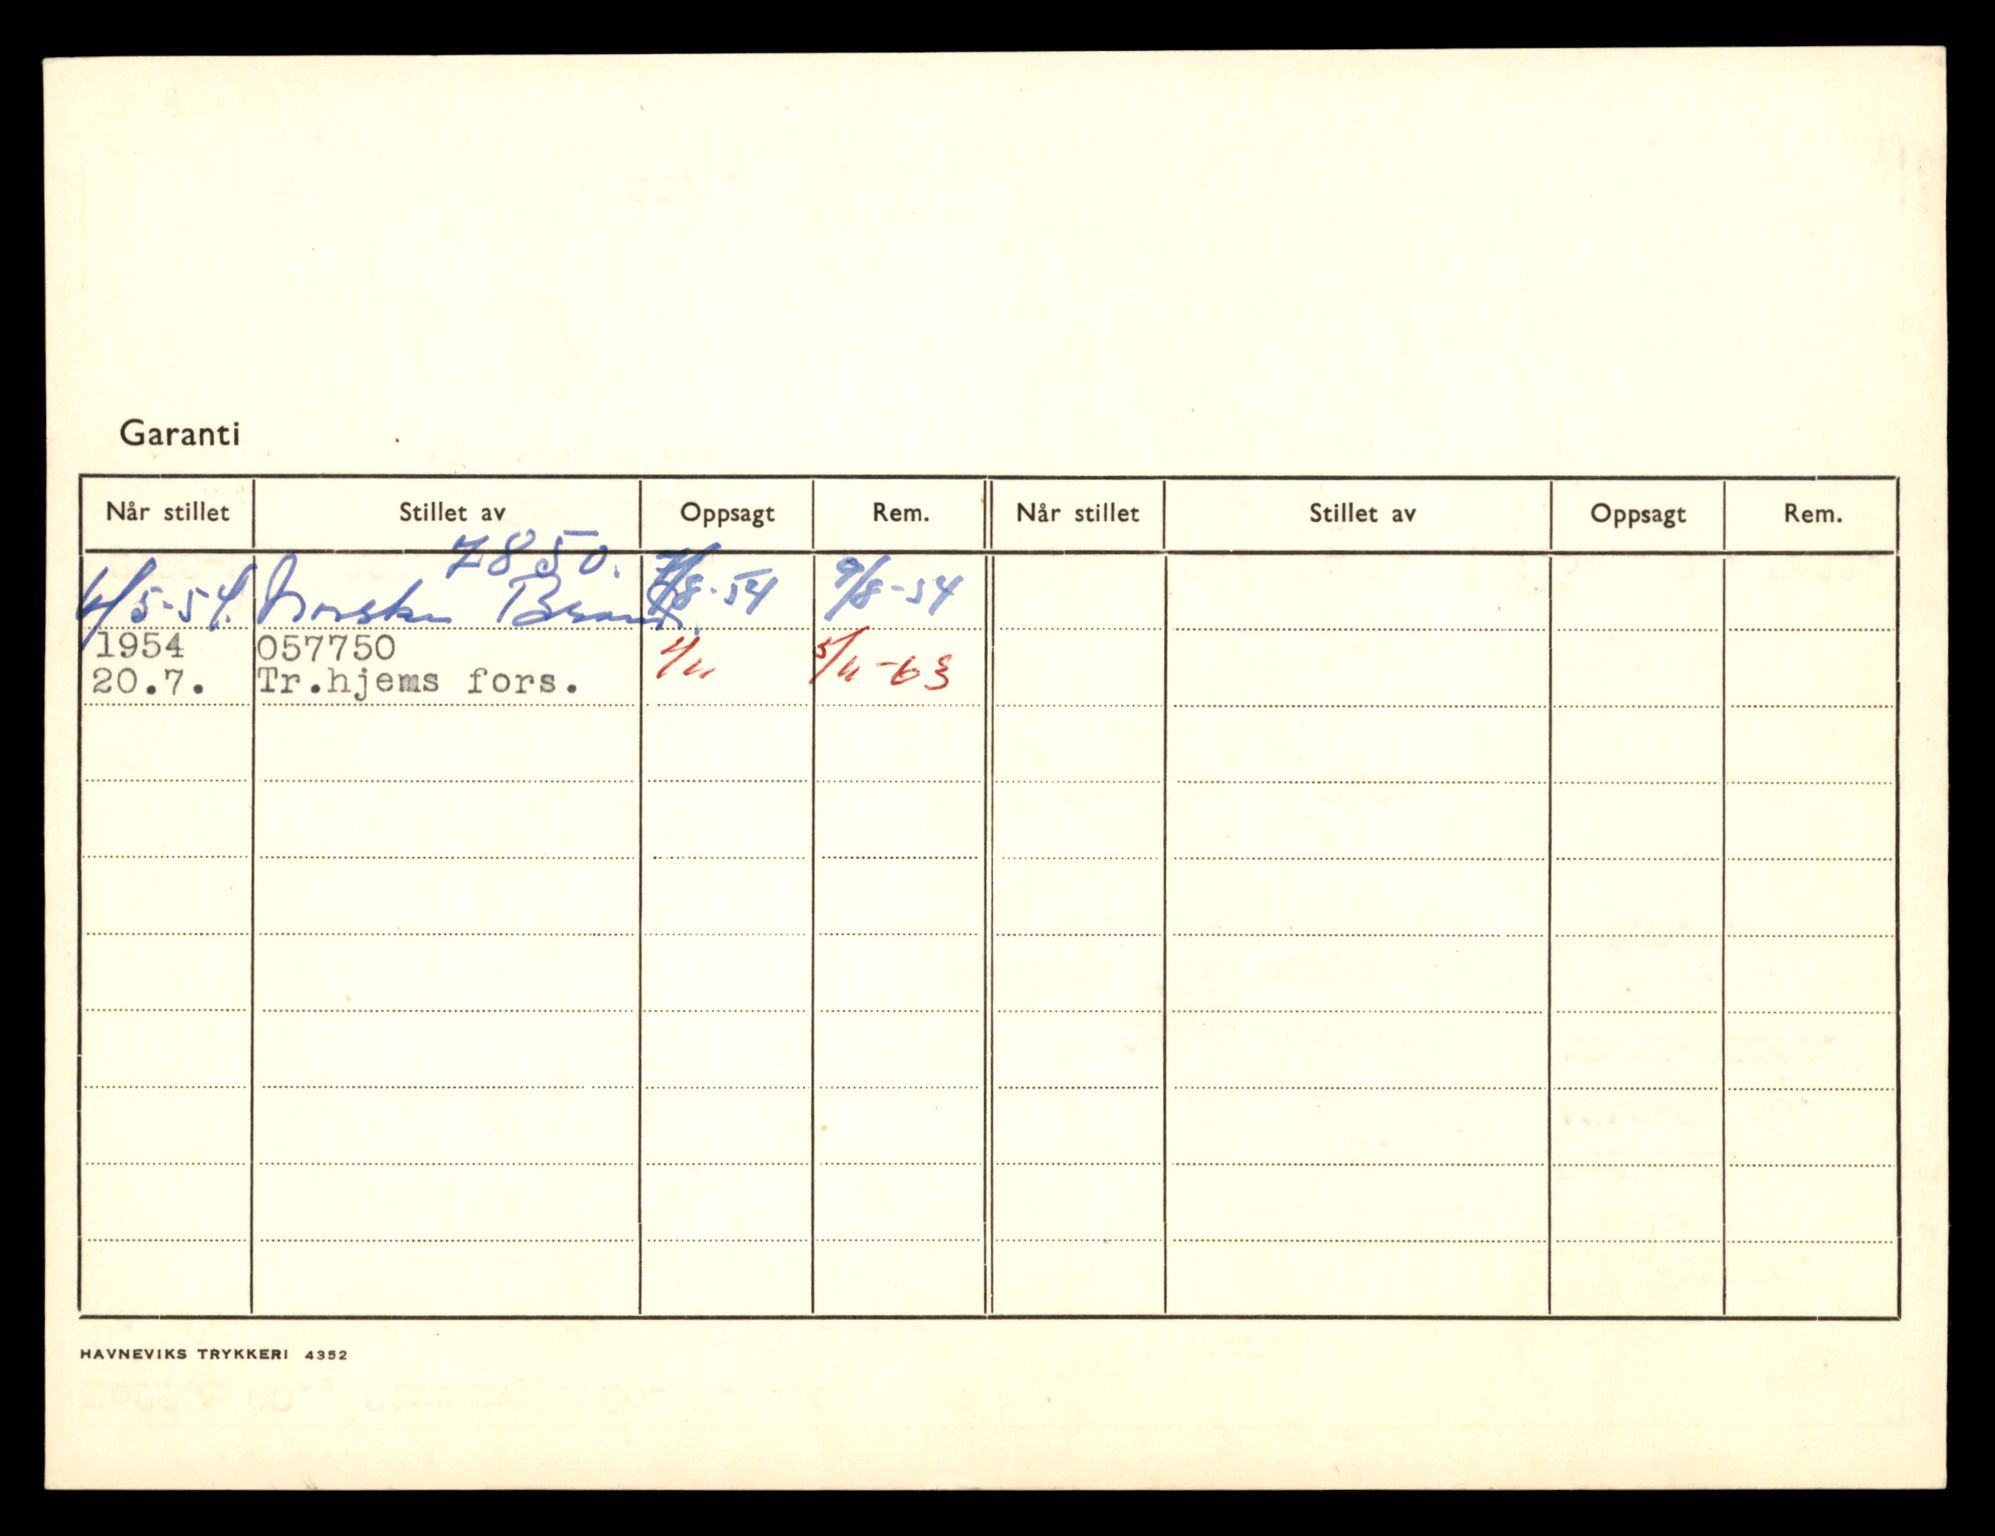 Garanti
Når stillet Stillet av Oppsagt Rem. Når stillet Stillet av Oppsagt Rem.
7850.
6/5-54. Norske Brand. 7/8-54 9/8-54
1954 057750
20.7. Tr.hjems fors. 4/11 5/11-63
HAVNEVIKS TRYKKERI 4352